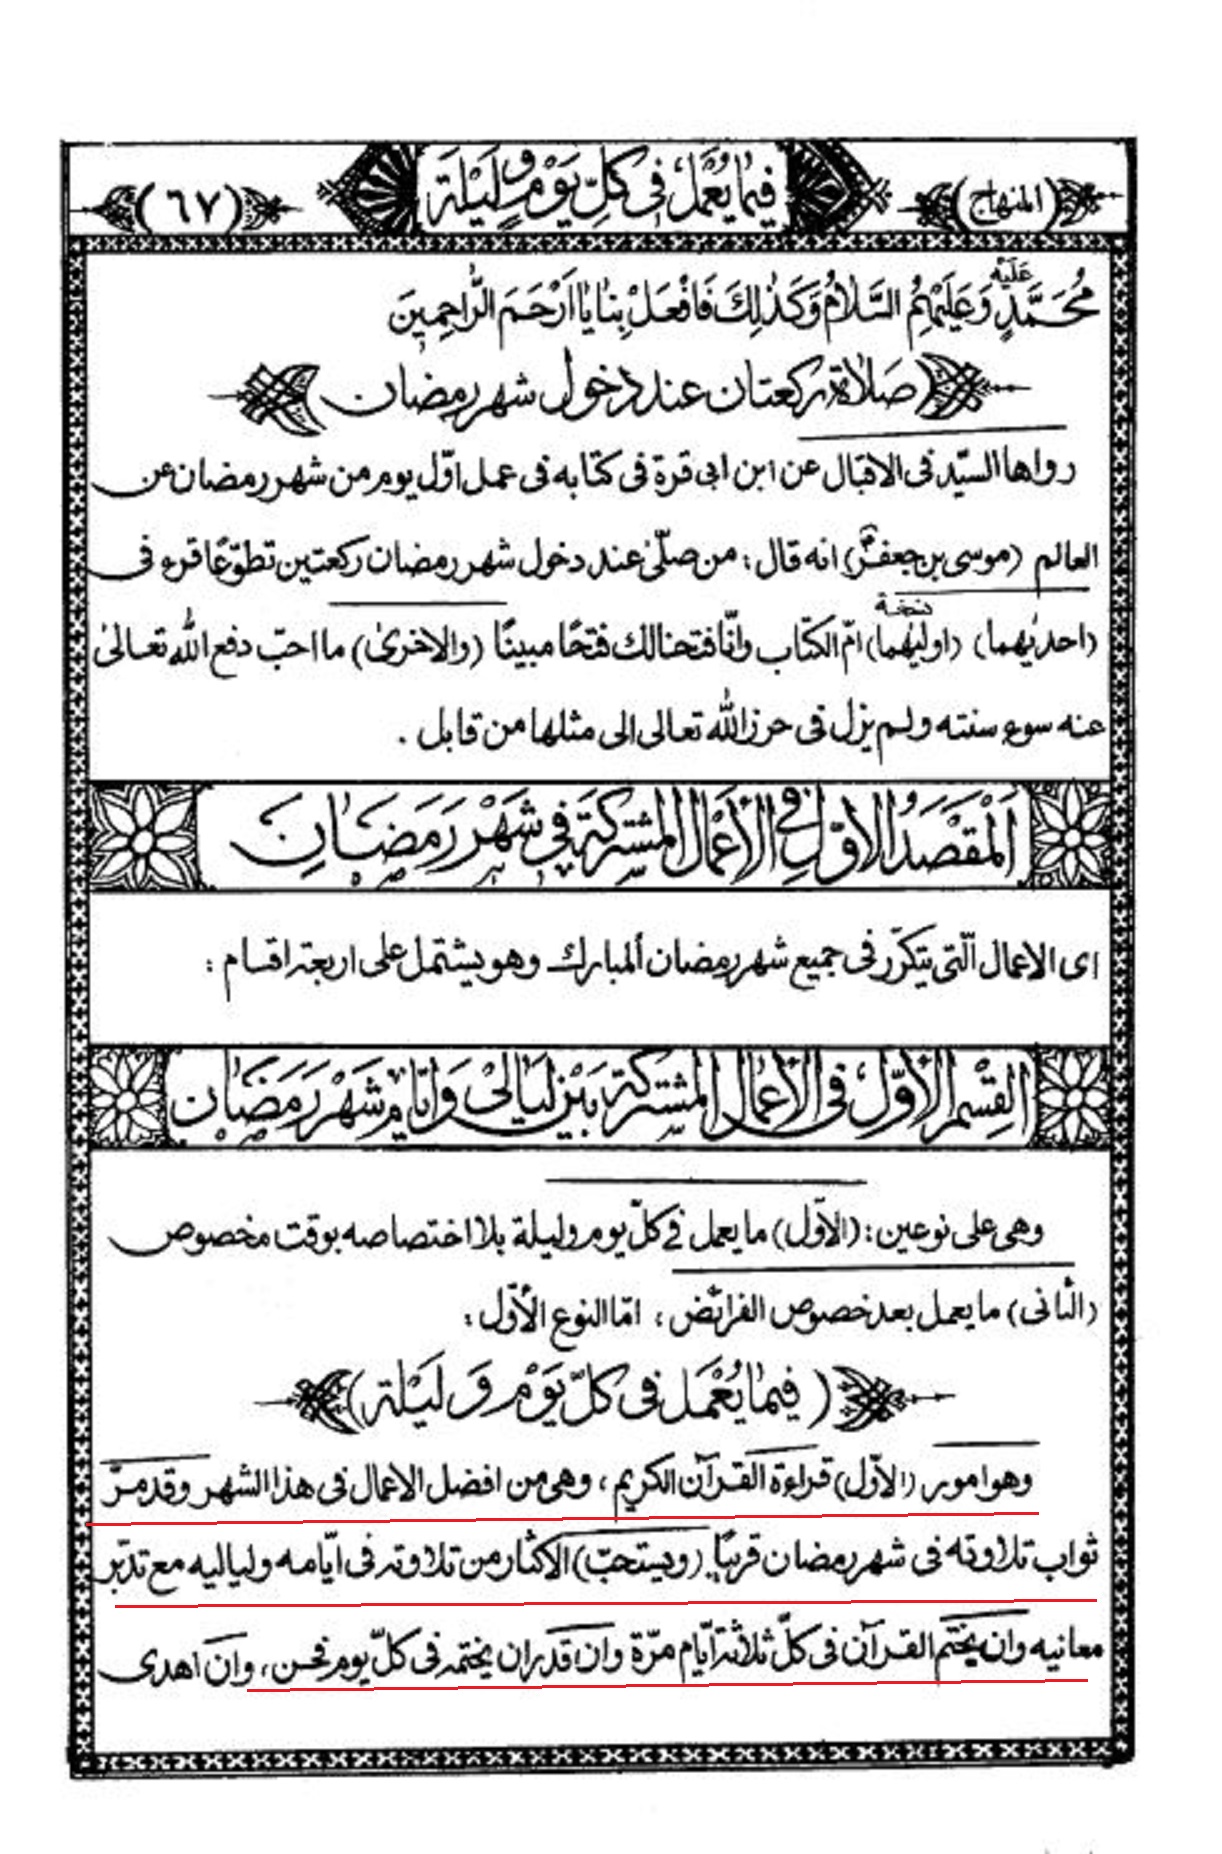 (المنهاج) فيما يعمل في كل يوم وليلة (٦٧)
عليه
مُحَمَّدٍ وَعَلَيْهِمُ السَّلامُ وَكَذٰلِكَ فَافْعَلْ بِنٰا يٰا اَرْحَمَ الرّٰاحِمِينَ
(صلاة ركعتان عند دخول شهر رمضان)
رواها السيّد في الاقبال عن ابن ابي قرة في كتابه في عمل اوّل يوم من شهر رمضان عن
العالم (موسى بن جعفر) انه قال : من صلّى عند دخول شهر رمضان ركعتين تطوّعًا قرء في
نسخة
(احديٰهما) (اوليٰهما) امّ الكتاب وانّا فتحنا لك فتحًا مبينًا (والاخرىٰ) ما احبّ دفع الله تعالىٰ
عنه سوء سنته ولم يزل في حرز الله تعالى الى مثلها من قابل .
اَلْمَقْصَدُ الاوّل في الأعْمٰال المشتركة في شَهْر رَمَضٰان
اى الاعمال الّتى يتكرّر في جميع شهر رمضان المبارك وهو يشتمل على اربعة اقسام :
القِسْم الأوّل في الأعْمٰال المشتركة بَيْن لَيٰالي وَايّام شَهْر رَمَضٰان
وهى على نوعين : (الأوّل) ما يعمل في كلّ يوم وليلة بلا اختصاصه بوقت مخصوص
(الثانى) ما يعمل بعد خصوص الفرائض ، امّا النوع الأوّل :
(فيمٰا يُعْمَل في كلّ يَوْم وَ لَيْلة)
وهو امور (الأوّل) قراءة القرآن الكريم ، وهى من افضل الاعمال في هذا الشهر وقد مرّ
ثواب تلاوته في شهر رمضان قريبًا (ويستحبّ) الاكثار من تلاوته في ايّامه ولياليه مع تدبّر
معانيه وان يختم القرآن في كلّ ثلاثة ايّام مرّة وان قدر ان يختمه في كلّ يوم فحسن ، وان اهدى